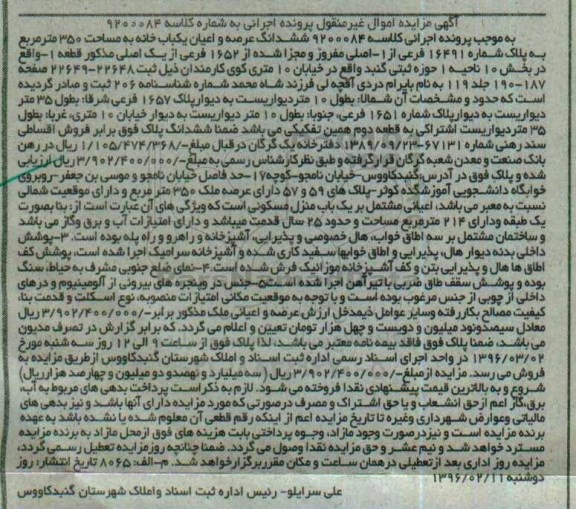 آگهی مزایده اموال غیرمنقول پرونده اجرائی به شماره کلاسه ۹۲۰۰۰۸۴
به موجب پرونده اجرائی کلاسه ۹۲۰۰۰۸۴ ششدانگ عرصه و اعیان یکباب خانه به مساحت ۳۵۰ مترمربع
به پلاک شماره ۱۶۴۹۱ فرعی از ۱-اصلی مفروز و مجزا شده از ۱۶۵۲ فرعی از یک اصلی مذکور قطعه ۱-واقع
در بخش ۱۰ ناحیه ۱ حوزه ثبتی گنبد واقع در خیابان ۱۰ متری کوی کارمندان ذیل ثبت ۲۲۶۴۸-۲۲۶۴۹ صفحه
۱۸۷-۱۹۰ جلد ۱۱۹ به نام بایرام دردی آقچه لی فرزند شاه محمد شماره شناسنامه ۲۰۶ ثبت و صادر گردیده
است که حدود و مشخصات آن شمالا: بطول ۱۰ متر دیواریست به دیوارپلاک ۱۶۵۷ فرعی شرقا: بطول ۳۵ متر
دیواریست به دیوارپلاک شماره ۱۶۵۱ فرعی، جنوبا: بطول ۱۰ متر دیواریست به دیوار خیابان ۱۰ متری، غربا: بطول
۳۵ متردیواریست اشتراکی به قطعه دوم همین تفکیکی می باشد ضمنا ششدانگ پلاک فوق برابر فروش اقساطی
سند رهنی شماره ۶۷۱۳۱-۱۳۸۹/۰۹/۲۳ دفترخانه یک گرگان درقبال مبلغ-/۱/۱۰۵/۴۷۴/۳۶۸ ریال در رهن
بانک صنعت و معدن شعبه گرگان قرارگرفته و طبق نظرکارشناس رسمی به مبلغ-/۳/۹۰۲/۴۰۰/۰۰۰ ریال ارزیابی
شده و پلاک فوق در آدرس:گنبدکاووس-خیابان نامجو-کوچه۱۷-حد فاصل خیابان نامجو و موسی بن جعفر-روبروی
خوابگاه دانشجویی آموزشگده کوثر-پلاک های ۵۹ و ۵۷ دارای عرصه ملک ۳۵۰ متر مربع و دارای موقعیت شمالی
نسبت به معبر می باشد، اعیانی مشتمل بر یک باب منزل مسکونی است که ویژگی های آن عبارت است از: بنا بصورت
یک طبقه ودارای ۲۱۴ مترمربع مساحت و حدود ۲۵ سال قدمت میباشد و دارای امتیازات آب و برق وگاز می باشد
و ساختمان مشتمل بر سه اطاق خواب، هال خصوصی و پذیرایی، آشپزخانه و راهرو و راه پله بوده است. ۳-پوشش
داخلی بدنه دیوار هال، پذیرایی و اطاق خوابها سفید کاری شده و آشپزخانه سرامیک اجرا شده است، پوشش کف
اطاق ها هال و پذیرایی بتن و کف آشپزخانه موزائیک فرش شده است.۴-نمای ضلع جنوبی مشرف به حیاط، سنگ
بوده و پوشش سقف طاق ضربی با تیرآهن اجرا شده است۵-جنس در وپنجره های بیرونی از آلومینیوم و درهای
داخلی از چوبی از جنس مرغوب بوده است و با توجه به موقعیت مکانی امتیازات منصوبه، نوع اسکلت و قدمت بنا،
کیفیت مصالح بکار رفته وسایر عوامل ذیمدخل ارزش عرصه و اعیانی ملک مذکور برابر-/۳/۹۰۲/۴۰۰/۰۰۰ ریال
معادل سیصدونود میلیون و دویست و چهل هزار تومان تعیین و اعلام می گردد. که برابر گزارش در تصرف مدیون
می باشد، ضمنا پلاک فوق فاقد بیمه نامه معتبر می باشد، لذا پلاک فوق از ساعت ۹ الی ۱۲ روز سه شنبه مورخ
۱۳۹۶/۰۳/۰۲ در واحد اجرای اسناد رسمی اداره ثبت اسناد و املاک شهرستان گنبدکاووس از طریق مزایده به
فروش می رسد. مزایده ازمبلغ-/۳/۹۰۲/۴۰۰/۰۰۰ریال (سه میلیارد و نهصدو دو میلیون و چهارصد هزارریال)
شروع و به بالاترین قیمت پیشنهادی نقدا فروخته می شود. لازم به ذکراست پرداخت بدهی های مربوط به آب،
برق،گاز اعم از حق انشعاب و یا حق اشتراک و مصرف درصورتی که مورد مزایده دارای آنها باشد و نیز بدهی های
مالیاتی وعوارض شهرداری وغیره تا تاریخ مزایده اعم از اینکه رقم قطعی آن معلوم شده یا نشده باشد به عهده
برنده مزایده است و نیزدرصورت وجود مازاد، وجوه پرداختی بابت هزینه های فوق ازمحل مازاد به برنده مزایده
مسترد خواهد شد و نیم عشر و حق مزایده نقدا وصول می گردد. ضمنا چنانچه روزمزایده تعطیل رسمی گردد،
مزایده روز اداری بعد ازتعطیلی درهمان ساعت و مکان مقرر برگزارخواهد شد. م-الف: ۸۰۶۵ تاریخ انتشار: روز
دوشنبه ۱۳۹۶/۰۲/۱۱
علی سرایلو- رئیس اداره ثبت اسناد واملاک شهرستان گنبدکاووس